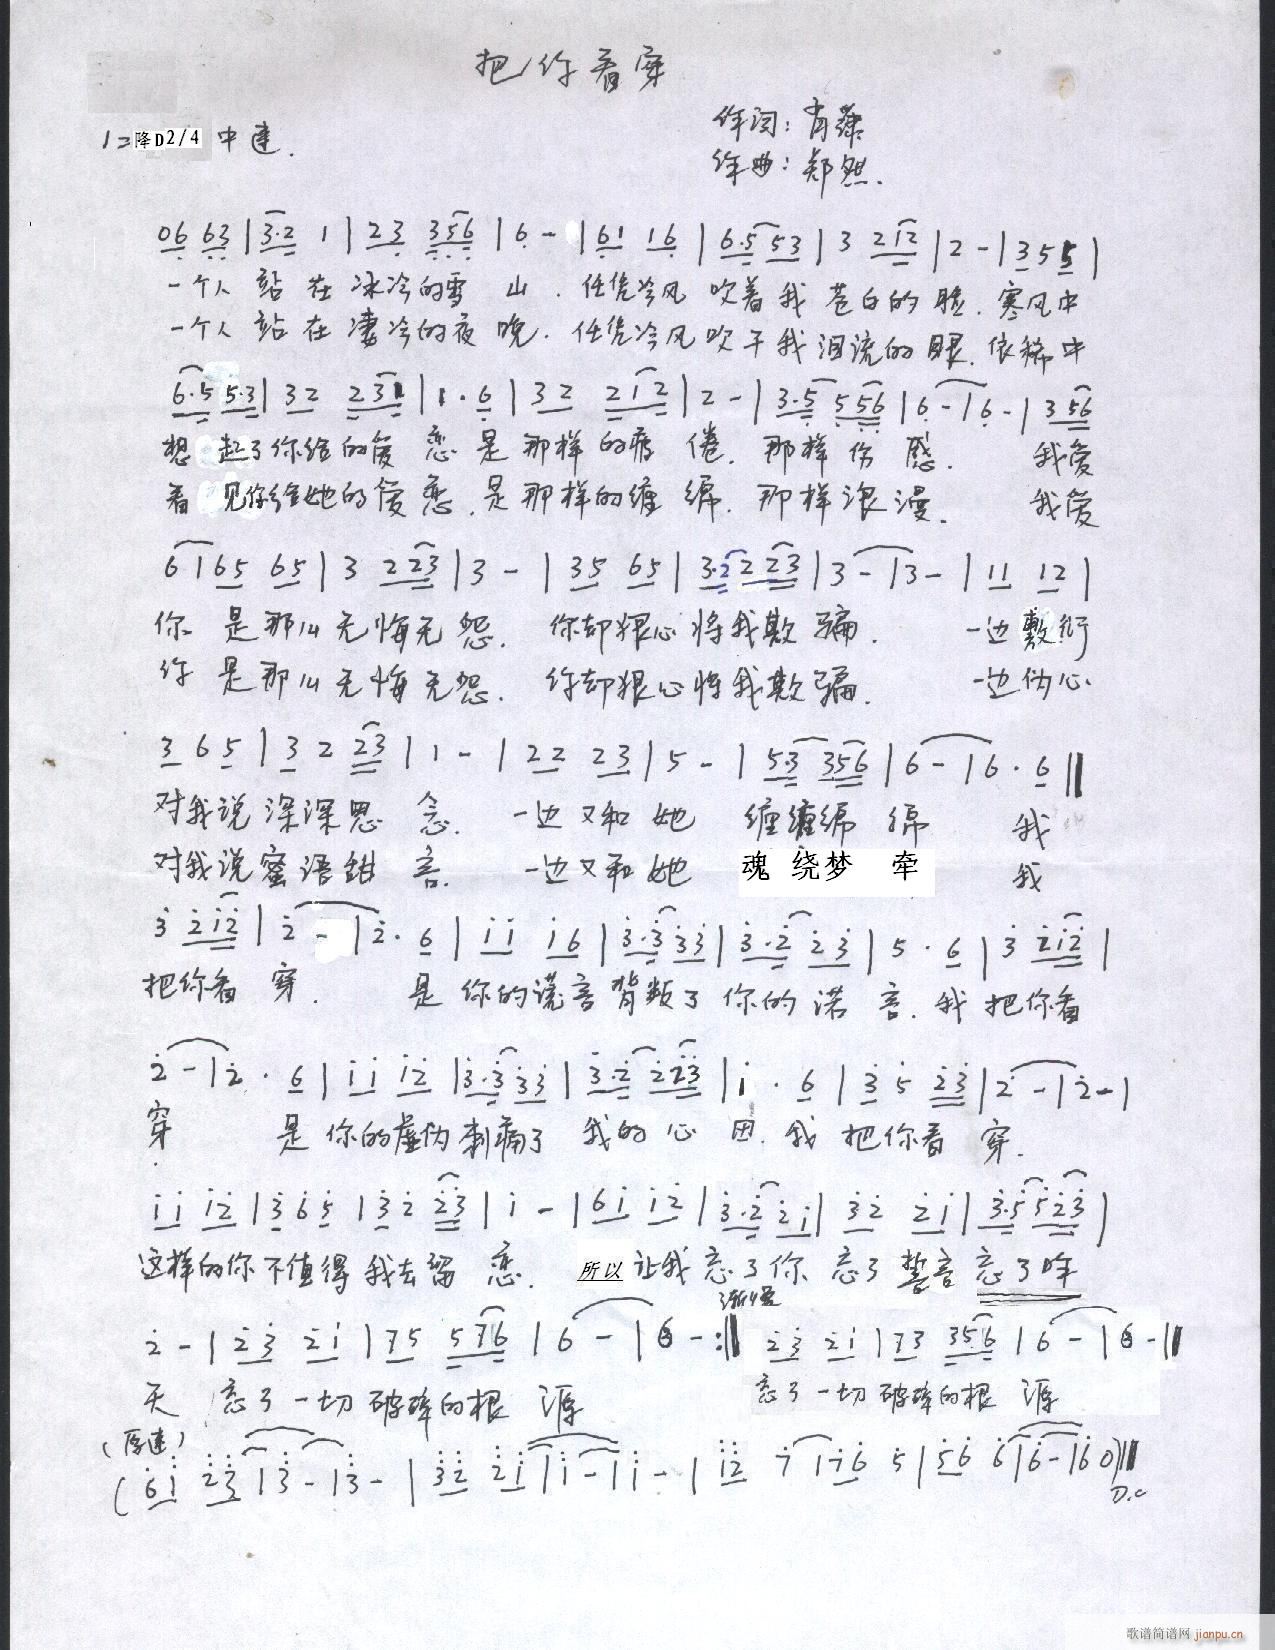 把你看穿
作词：肖
1=降D2/4 中速.
作曲：郑然.
06 63|3·2 1|23 356|6-|61 16|6·5 53|3 212|2-|355|
一个人 站 在 冰冷的雪 山. 任凭冷风 吹着我 苍白的脸. 寒风中
一个人 站在凄冷的夜晚. 任凭冷风吹干我泪流的眼. 依稀中
6·5 5·3|32 231|1·6|32 212|2-|3·5 556|6-|6-|3 56
想 起了你给的爱 恋 是 那样 的疲 倦. 那样伤 感. 我爱
看 见你给她的爱 恋. 是那样的缠 绵. 那样浪漫. 我爱
6|65 65|3 223|3-|35 65|3·2 2 23|3-|3-|11 12|
你 是那么无悔无 怨. 你却狠心将我欺 骗. 一边敷衍
你 是那么无悔无怨. 你却狠心将我欺骗. 一边伪心
3 6 5|3 2 23|1-|22 23|5-|5·3 356|6-|6·6‖
对我说深深思 念. 一边又和 她 缠缠绵 绵 我
对我说蜜语甜 言. 一边又和她 魂 绕梦 牵 我
3 212|2-|2·6|11 16|3·3 33|3·2 23|5·6|3 212|
把你看 穿. 是 你的谎言背叛了 你的 诺 言. 我 把你看
2-|2·6|11 12|3·3 33|3·2 223|1·6|35 23|2-|2-|
穿 是 你的虚伪刺痛了 我的 心 田. 我 把你看 穿.
11 12|365|32 23|1-|61 12|3·2 21|32 21|3·5 523|
这样的你不值得 我去留 恋. 所以 让我 忘了你 忘了 誓言 忘了昨
渐慢
2-|23 21|75 576|6-|6-:‖ 23 21|73 356|6-|6-‖
天 忘了一切破碎的根 源 忘了一切 破碎的根 源
(原速)
(61 23|3-|3-|32 21|1-|1-|12 7|76 5|56 6|6-|60)‖
D.C
歌谱简谱网 jianpu.cn